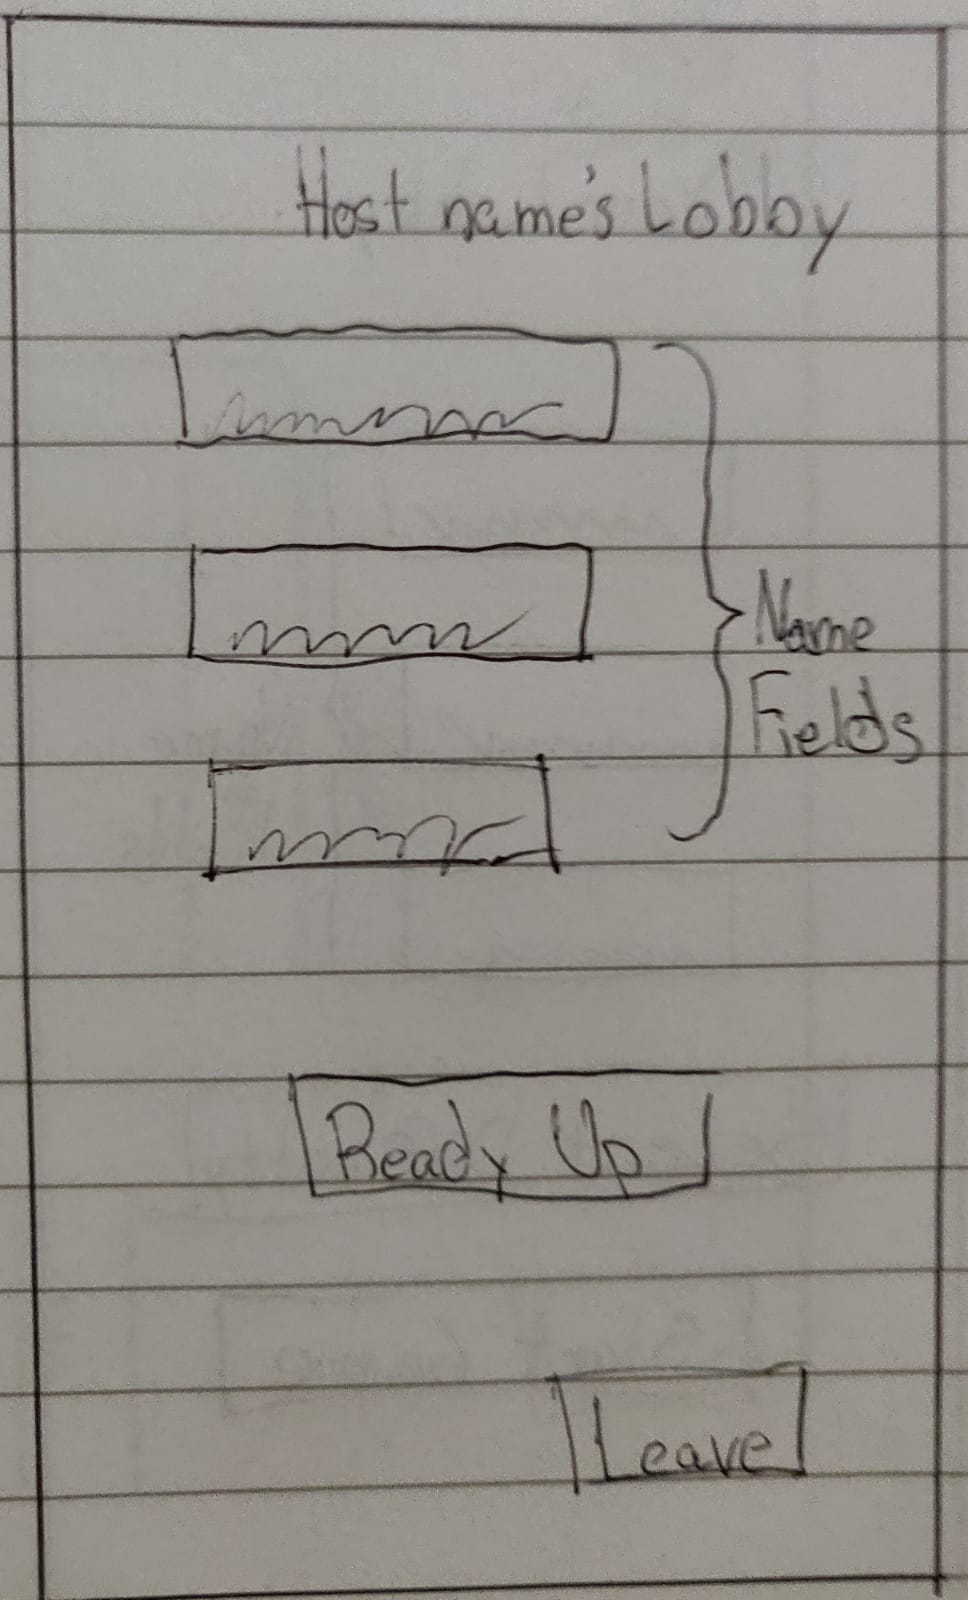 Host name's Lobby
Name
Fields
Ready Up
Leave